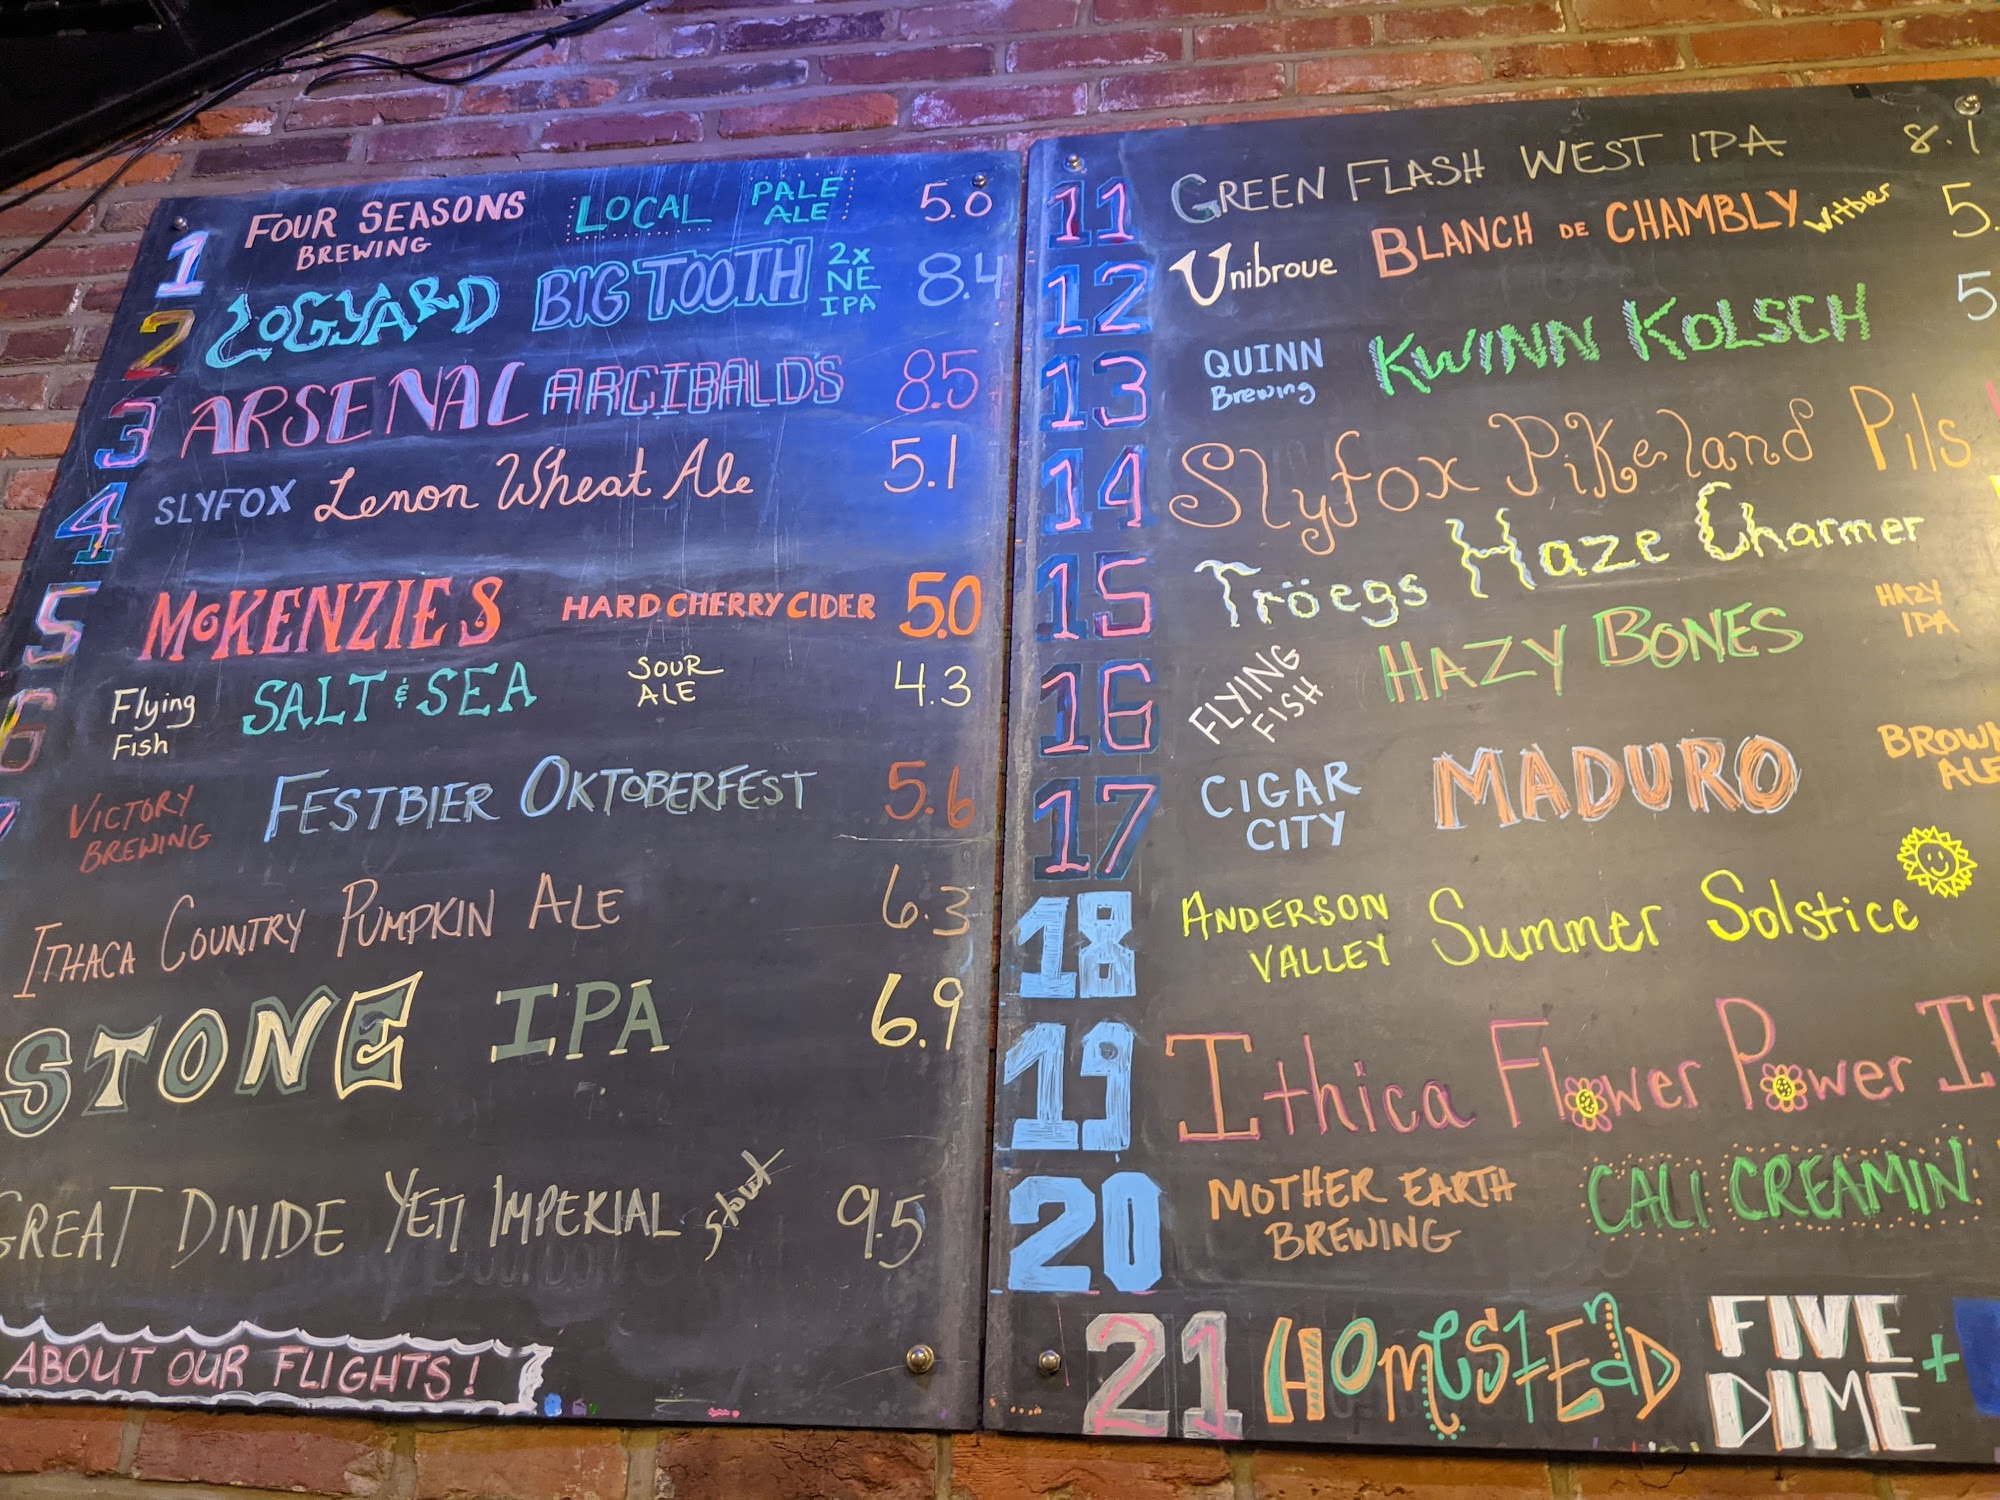 1 FOUR SEASONS BREWING LOCAL PALE ALE 5.0
2 LOGYARD BIG TOOTH 2x NE IPA 8.4
3 ARSENAL ARCIBALD'S 8.5
4 SLYFOX Lenon Wheat Ale 5.1
5 McKENZIE'S HARD CHERRY CIDER 5.0
6 Flying Fish SALT & SEA SOUR ALE 4.3
7 VICTORY BREWING FESTBIER OKTOBERFEST 5.6
ITHACA COUNTRY PUMPKIN ALE 6.3
STONE IPA 6.9
GREAT DIVIDE YETI IMPERIAL stout 9.5
ABOUT OUR FLIGHTS!
11 GREEN FLASH WEST IPA 8.1
12 Unibroue BLANCH DE CHAMBLY Witbier 5.
13 QUINN Brewing KWINN KOLSCH 5
14 Slyfox Pikeland Pils
15 Tröegs Haze Charmer
16 FLYING FISH HAZY BONES HAZY IPA
17 CIGAR CITY MADURO BROWN ALE
18 ANDERSON VALLEY Summer Solstice
19 Ithica Flower Power I
20 MOTHER EARTH BREWING CALI CREAMIN
21 HOMESTEAD FIVE + DIME